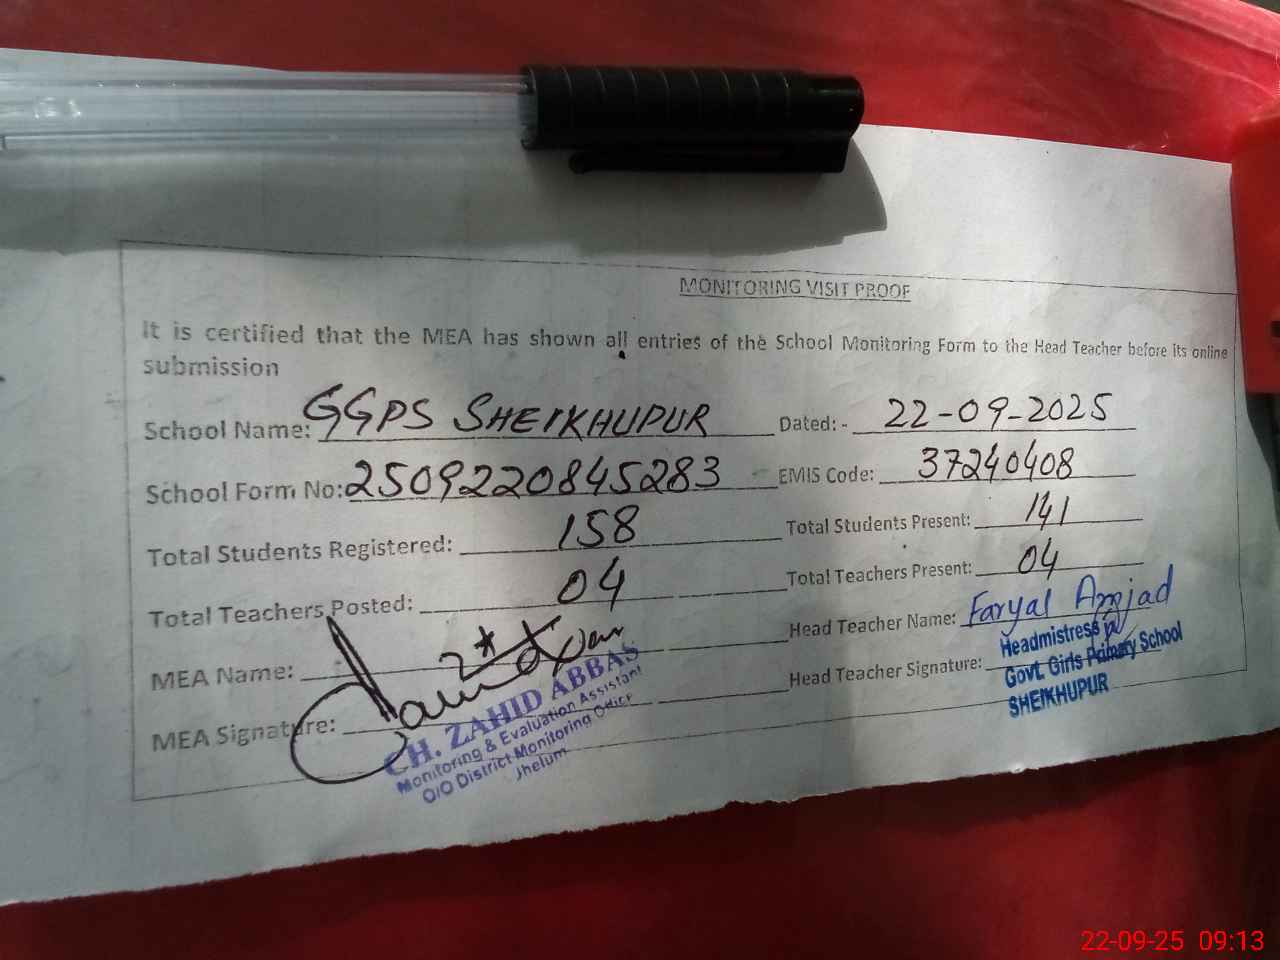 MONITORING VISIT PROOF
It is certified that the MEA has shown all entries of the School Monitoring Form to the Head Teacher before its online
submission
School Name: GGPS SHEIKHUPUR Dated: - 22-09-2025
School Form No: 2509220845283 EMIS Code: 37240408
Total Students Registered: 158 Total Students Present: 141
Total Teachers Posted: 04 Total Teachers Present: 04
MEA Name: Head Teacher Name: Faryal Amjad
MEA Signature: Head Teacher Signature:
CH. ZAHID ABBAS
Monitoring & Evaluation Assistant
O/O District Monitoring Officer
Jhelum
Headmistress
Govt. Girls Primary School
SHEIKHUPUR
22-09-25 09:13